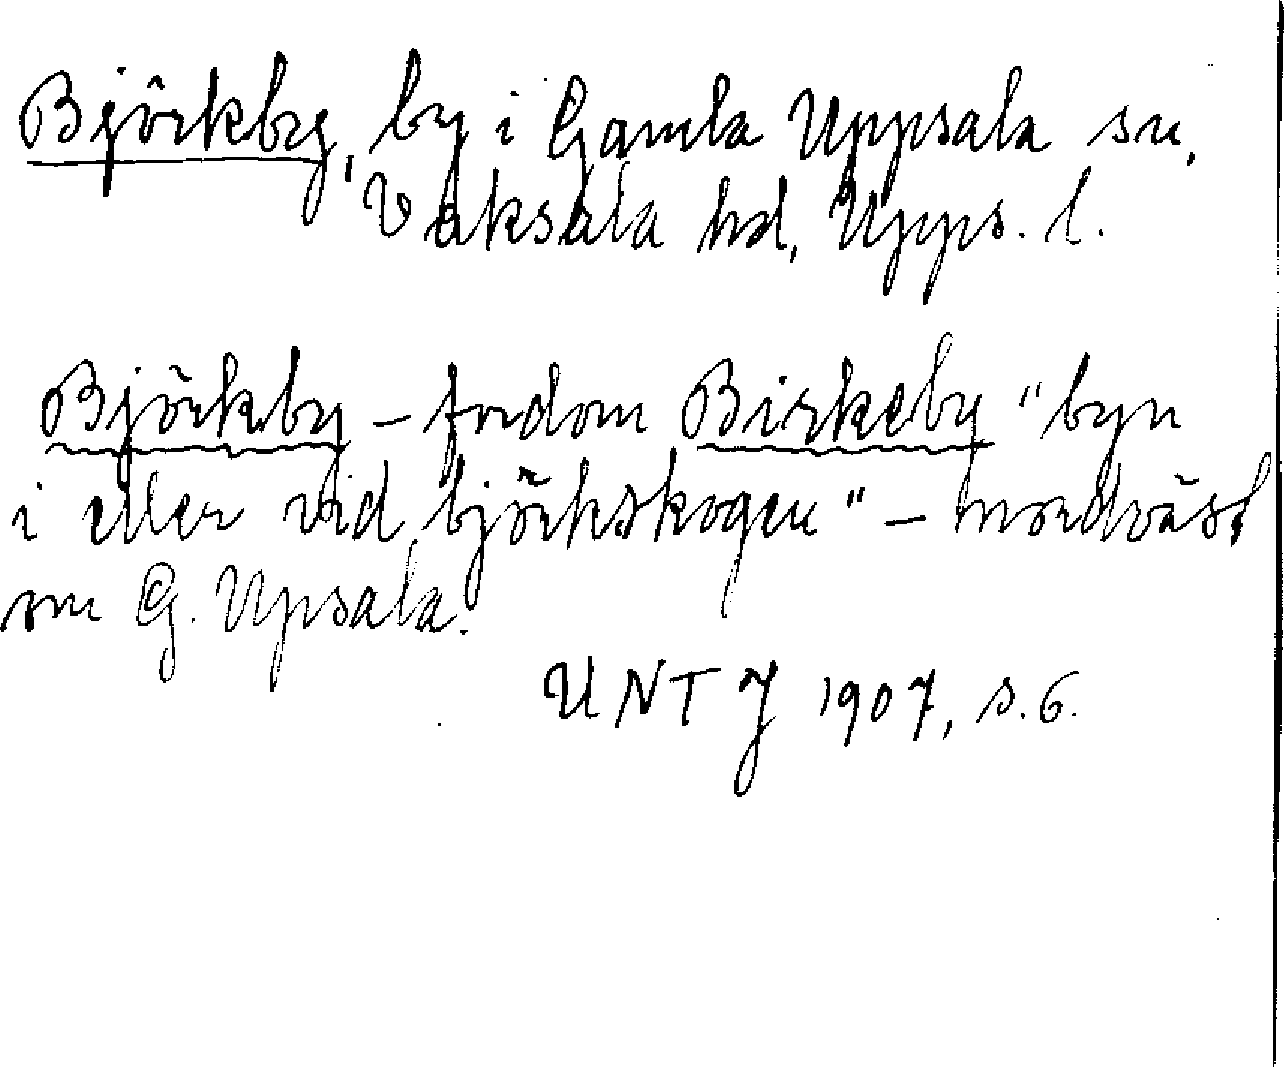 Björkby, by i Gamla Uppsala sn,
Vaksala hd, Upps. l.
Björkby – fordom Birkeby "byn
i eller vid björkskogen" – nordväst
om G. Upsala.
UNT J 1907, s. 6.